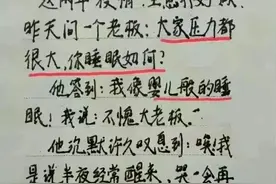 这两年疫情,生意
昨天问一个老板:大家压力都
很大,你睡眠如何?
他答到:我像婴儿般的睡
眠!我说:不愧大老板。
他沉默许久叹息到:唉!我
是说半夜经常醒来、哭一会再